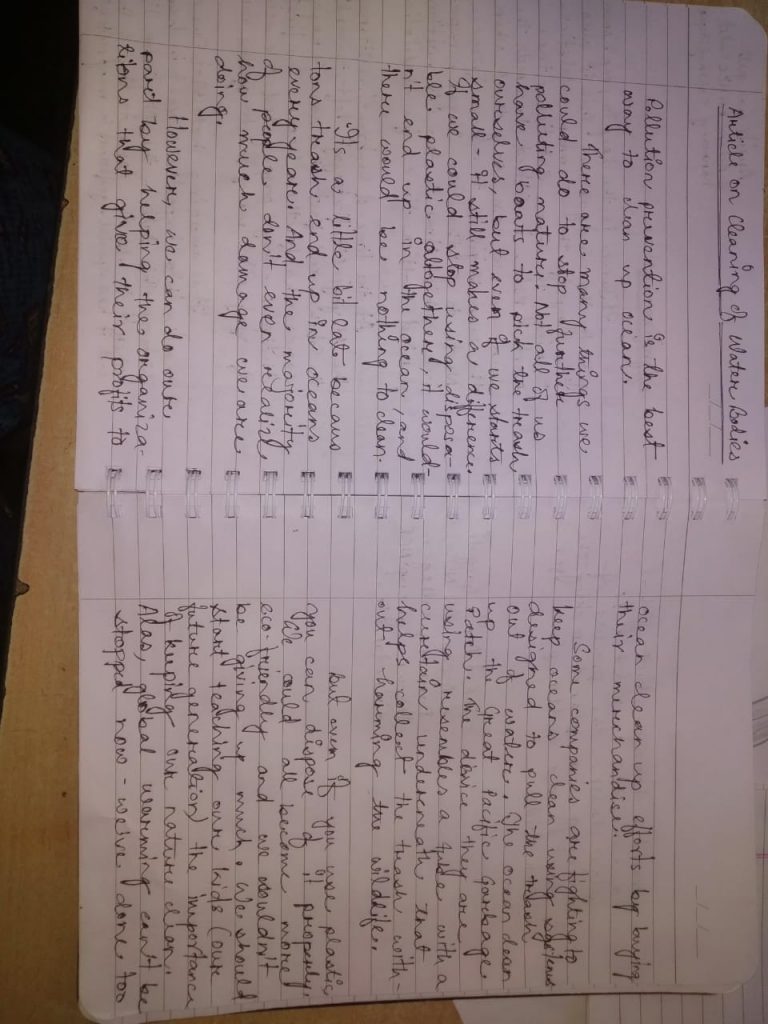 Article on Cleaning of Water Bodies
Pollution prevention is the best
way to clean up ocean.
There are many things we
could do to stop further
polluting nature. Not all of us
have boats to pick the trash
ourselves, but even if we starts
small - It still makes a difference.
If we could stop using disposa-
ble plastic altogether, it would-
n't end up in the ocean, and
there would be nothing to clean.
It's a little bit late becaus
tons trash end up in oceans
every year. And the majority
of people don't even realize
how much damage we are
doing.
However, we can do our
pard by helping the organiza-
tions that give their profits to
ocean clean up efforts by buying
their merchandise.
Some companies are fighting to
keep oceans clean using systems
designed to pull the trash
out of water. The ocean clean
up the Great Pacific Garbage
Patch. The device they are
using resembles a tube with a
curtain underneath that
helps collect the trash with-
out harming the wildlife.
But even if you use plastic
you can dispose of it properly.
We could all become more
eco-friendly and we wouldn't
be giving up much. We should
start teaching our kids (our
future generation) the importance
of keeping our nature clean.
Alas, global warming can't be
stopped now - we've done too